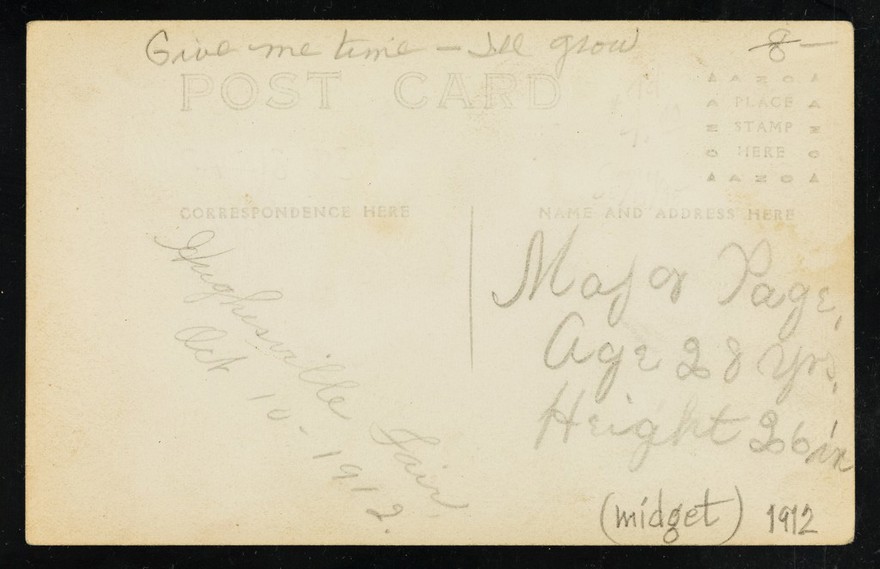 Give me time — I'll grow
8 —
POST CARD
AZOA
PLACE
STAMP
HERE
AAZOA
CORRESPONDENCE HERE
NAME AND ADDRESS HERE
Hughesville Fair
Oct 10 - 1912.
Major Page,
Age 28 yrs,
Height 26 in
(midget) 1912